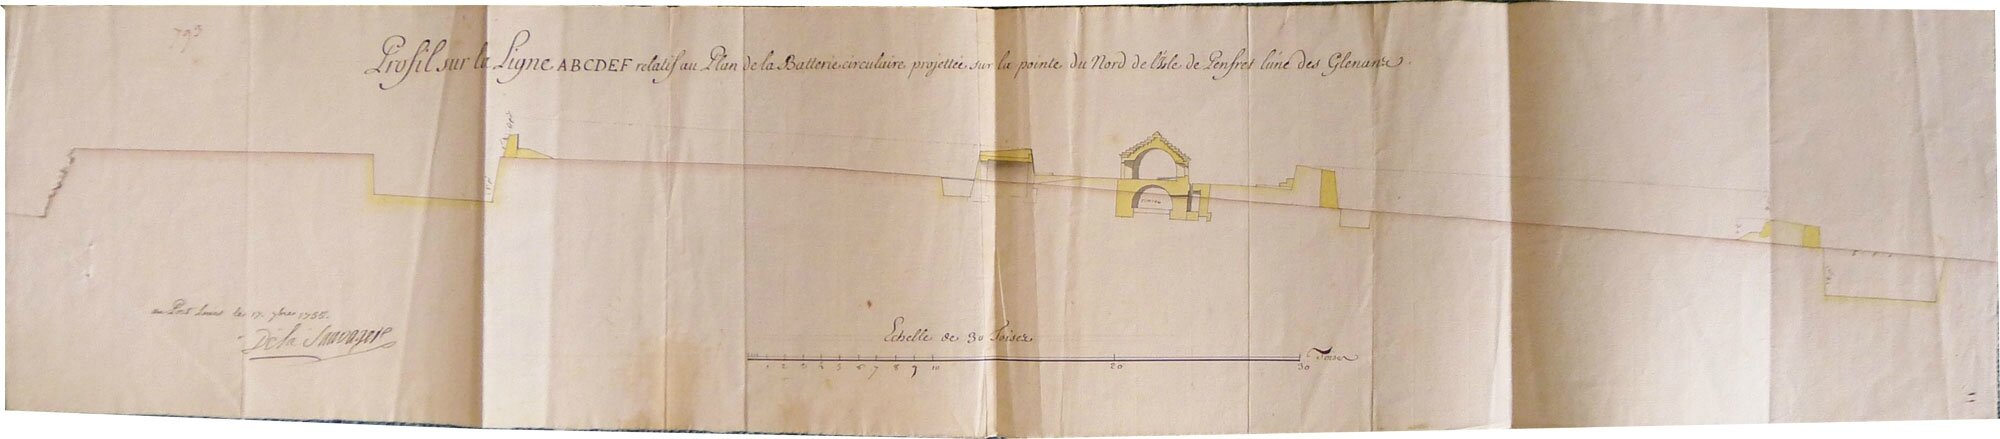 795
Profil sur la Ligne ABCDEF relatif au Plan de la Batterie circulaire, projettée sur la pointe du Nord de l'Isle de Penfret l'une des Glenanz.
au Port Louis le 17. 7bre 1755.
De la Sauvagere
Echelle de 30 Toises
1 2 3 4 5 6 7 8 9 10 20 30 Toises